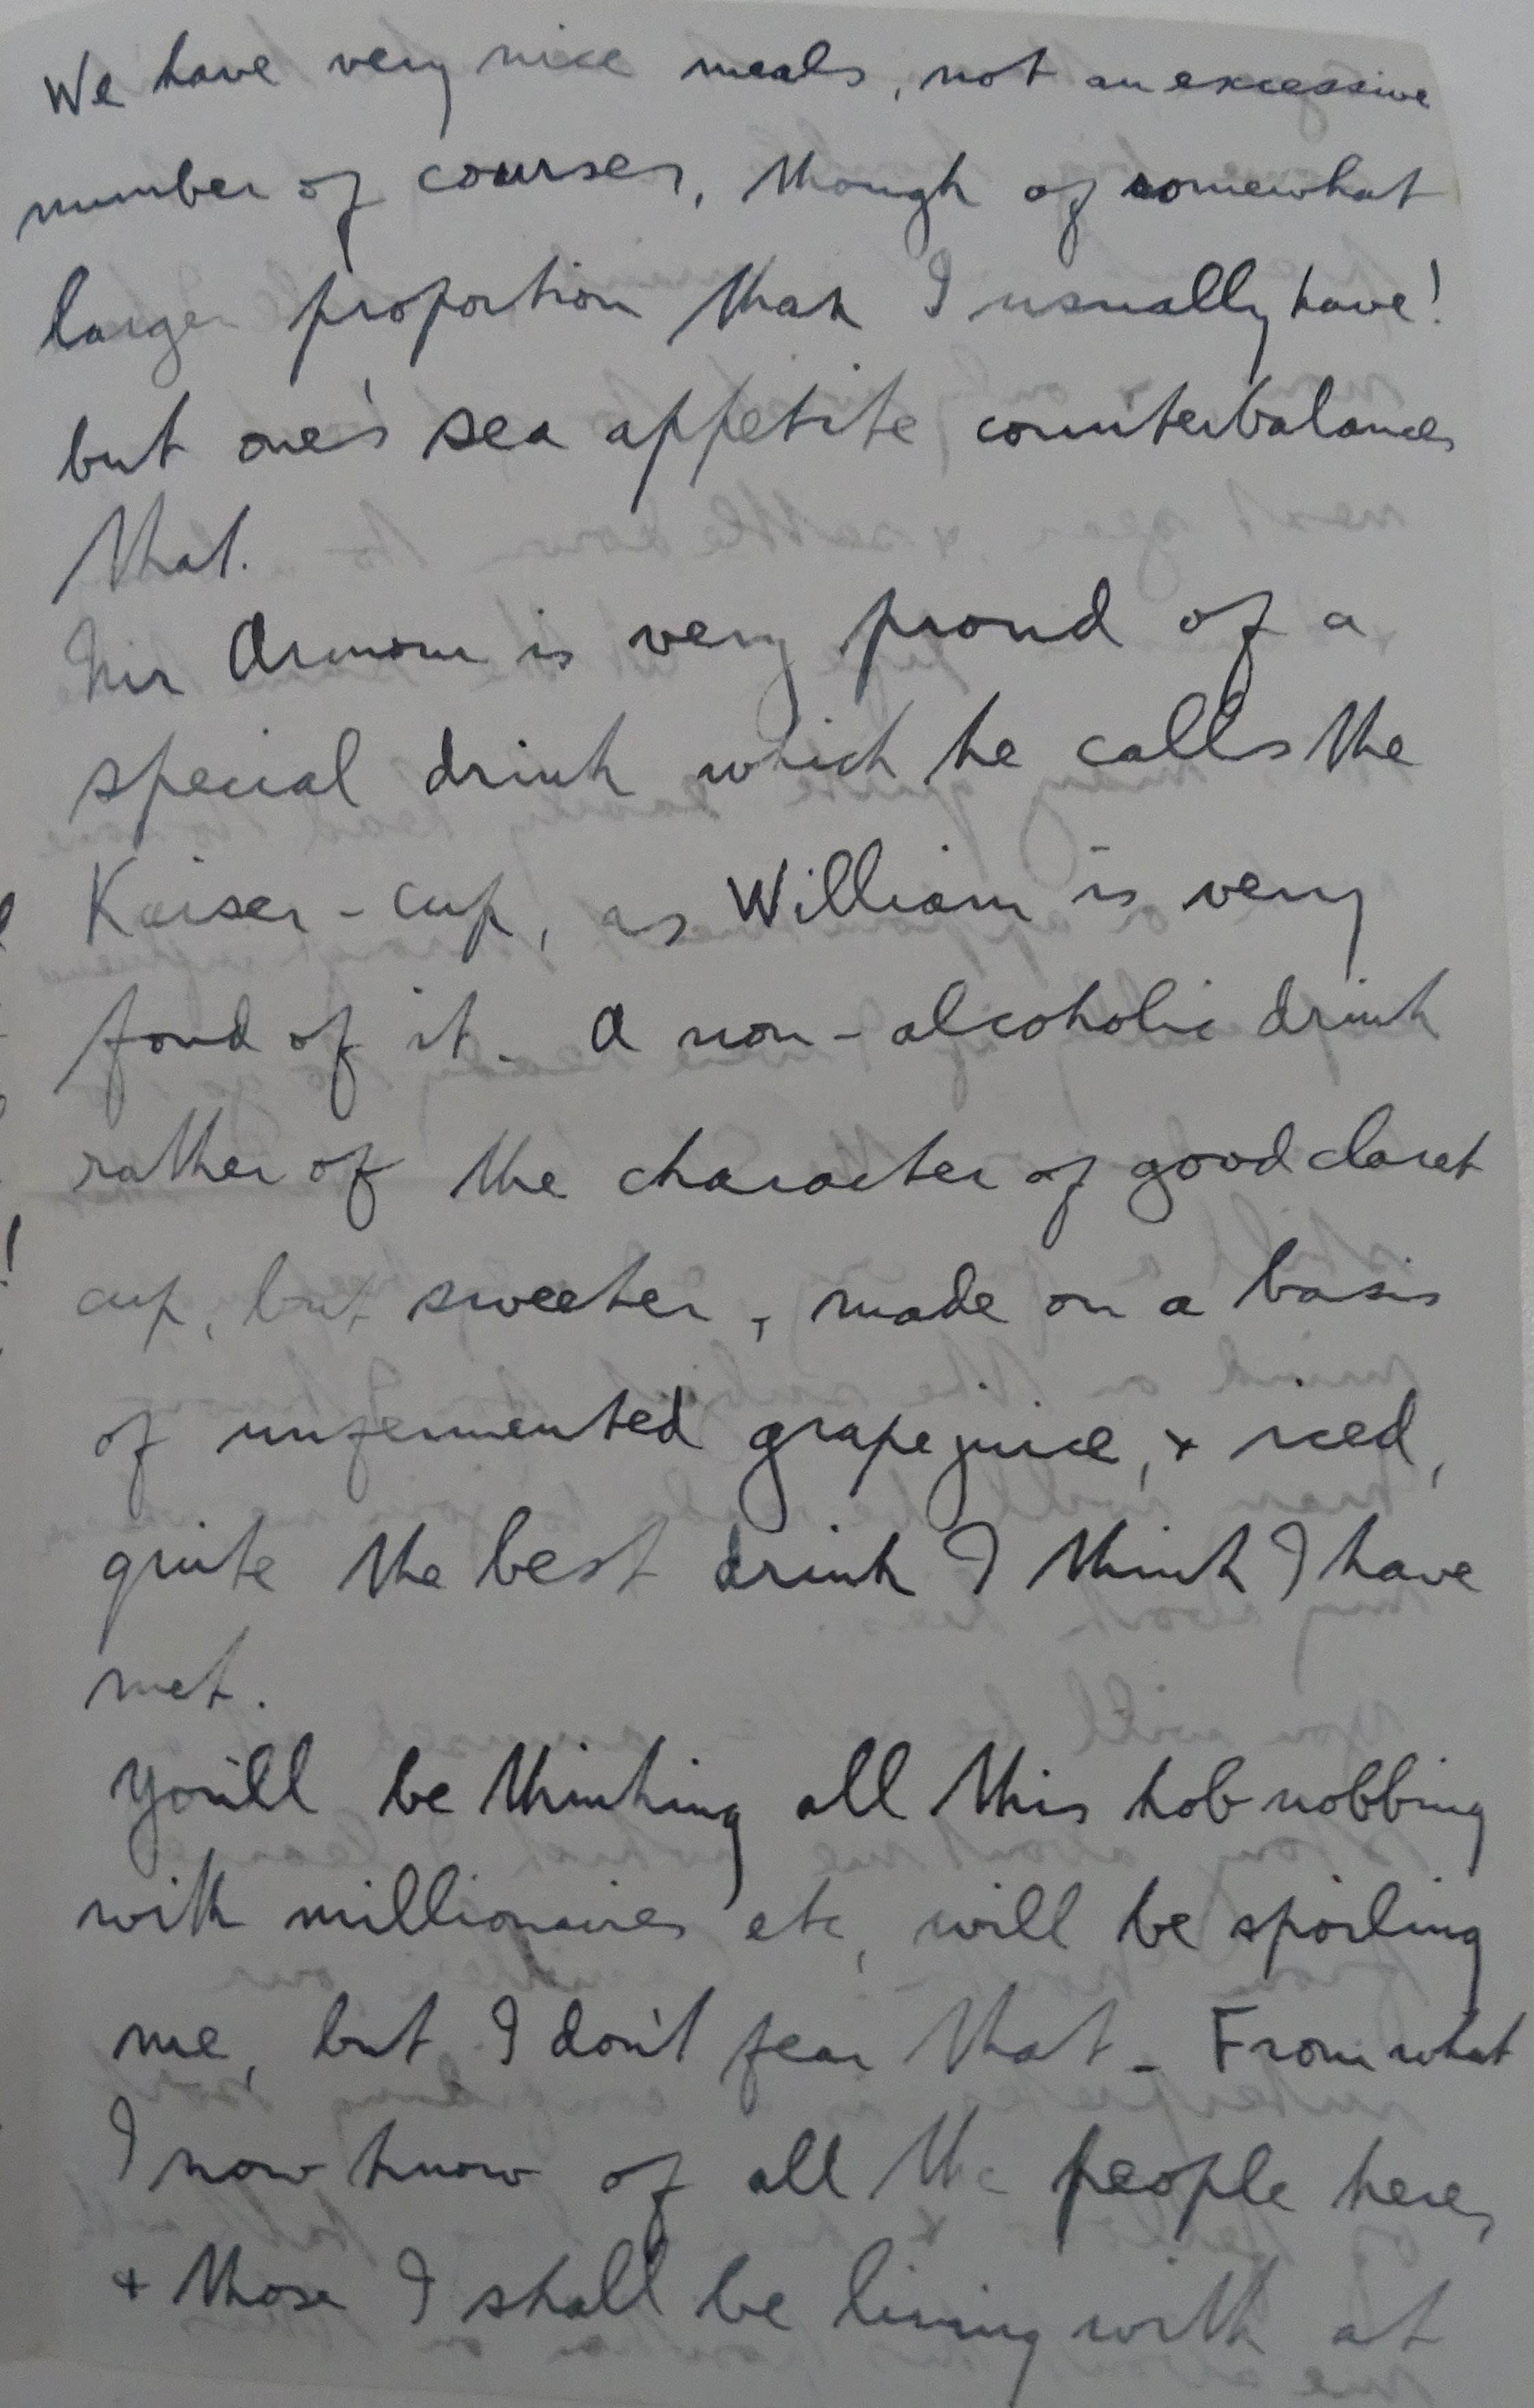 We have very nice meals, not an excessive
number of courses, though of somewhat
larger proportion than I usually have!
but one's sea appetite counterbalances
that.
Mr Armour is very proud of a
special drink which he calls the
Kaiser-cup, as William is very
fond of it. A non-alcoholic drink
rather of the character of good claret
cup, but sweeter, made on a basis
of unfermented grape juice, & iced,
quite the best drink I think I have
met.
You'll be thinking all this hob nobbing
with millionaires etc, will be spoiling
me, but I don't fear that. From what
I now know of all the people here,
& those I shall be living with at